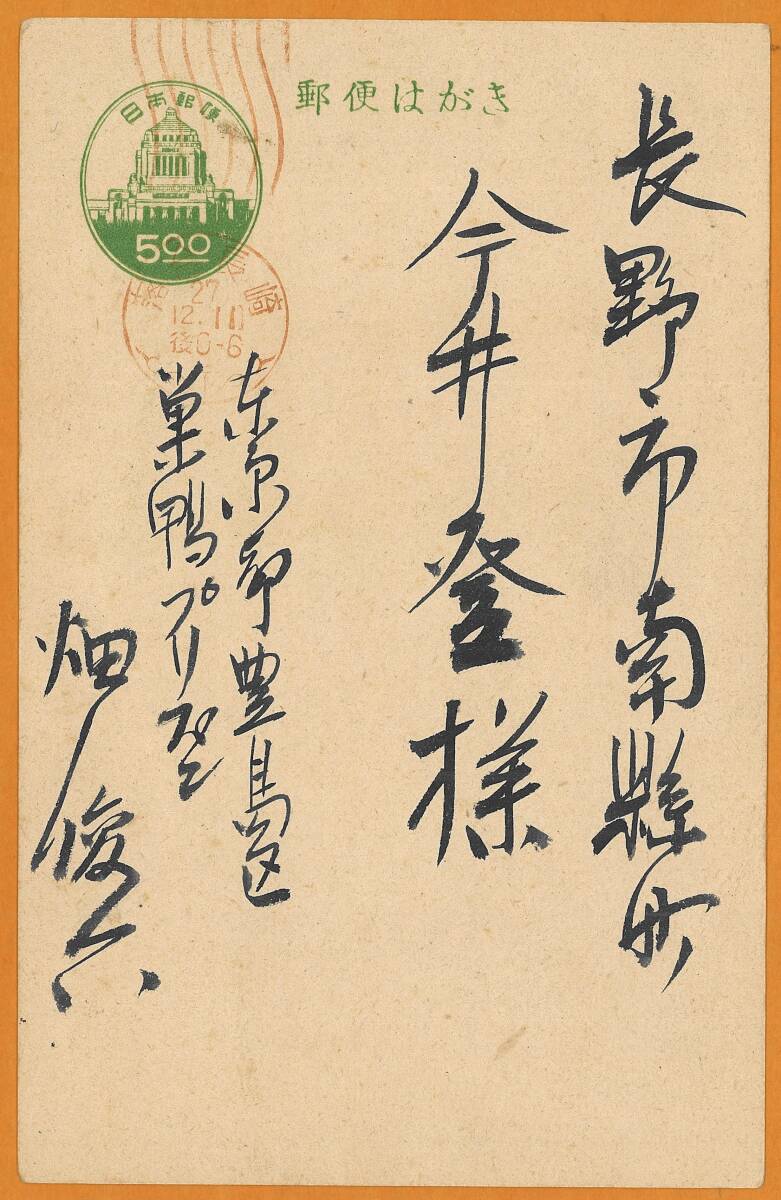 郵便はがき
日本郵便
5.00
27
12.11
後0-6
長野市南縣町
今井登様
東京都豊島区
巣鴨プリズン
畑俊六